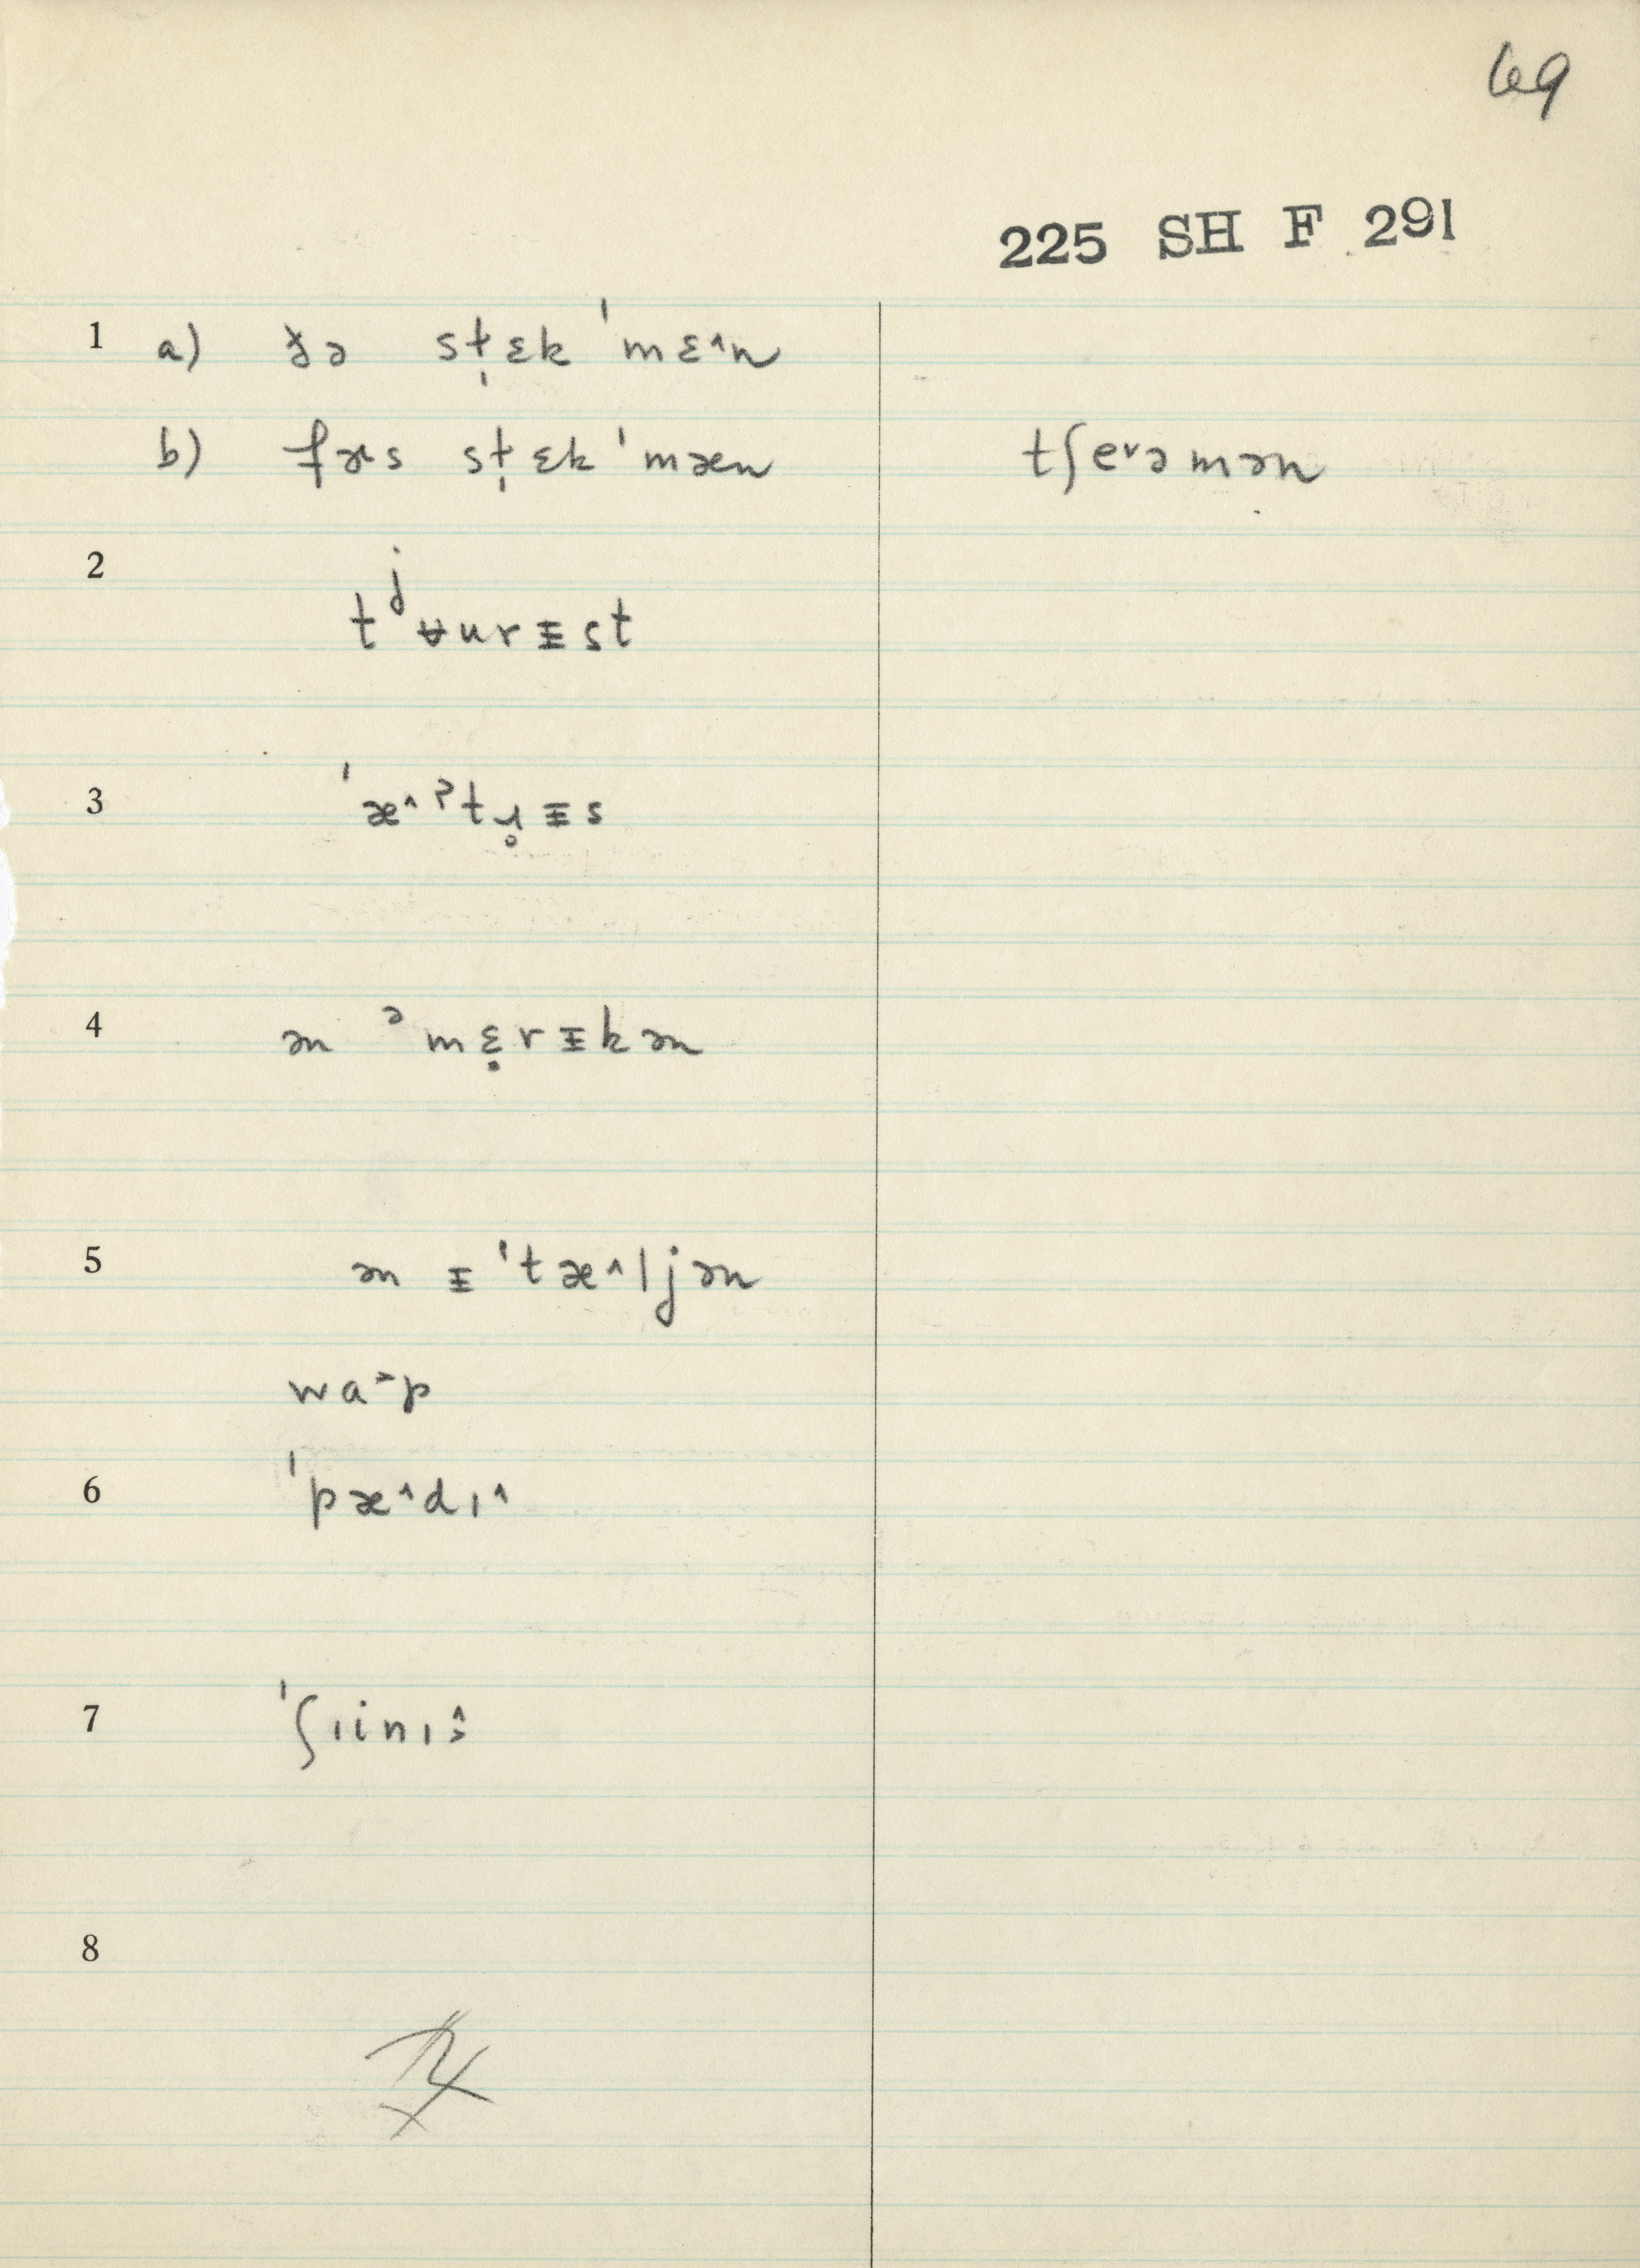 69
225 SH F 291
1 a) ðə st̩ɛk ˈmɛ^n
b) fɝs st̩ɛk ˈmæn tʃe˅əmən
2 tʲʉurᵻst
3 ˈæ^ˀtɹ̥ᵻs
4 ən ᵊmɛ̣rᵻkən
5 ən ᵻˈtæ^ljən
wa˃p
6 ˈpæ^dɪ^
7 ˈʃɪinɪ
8